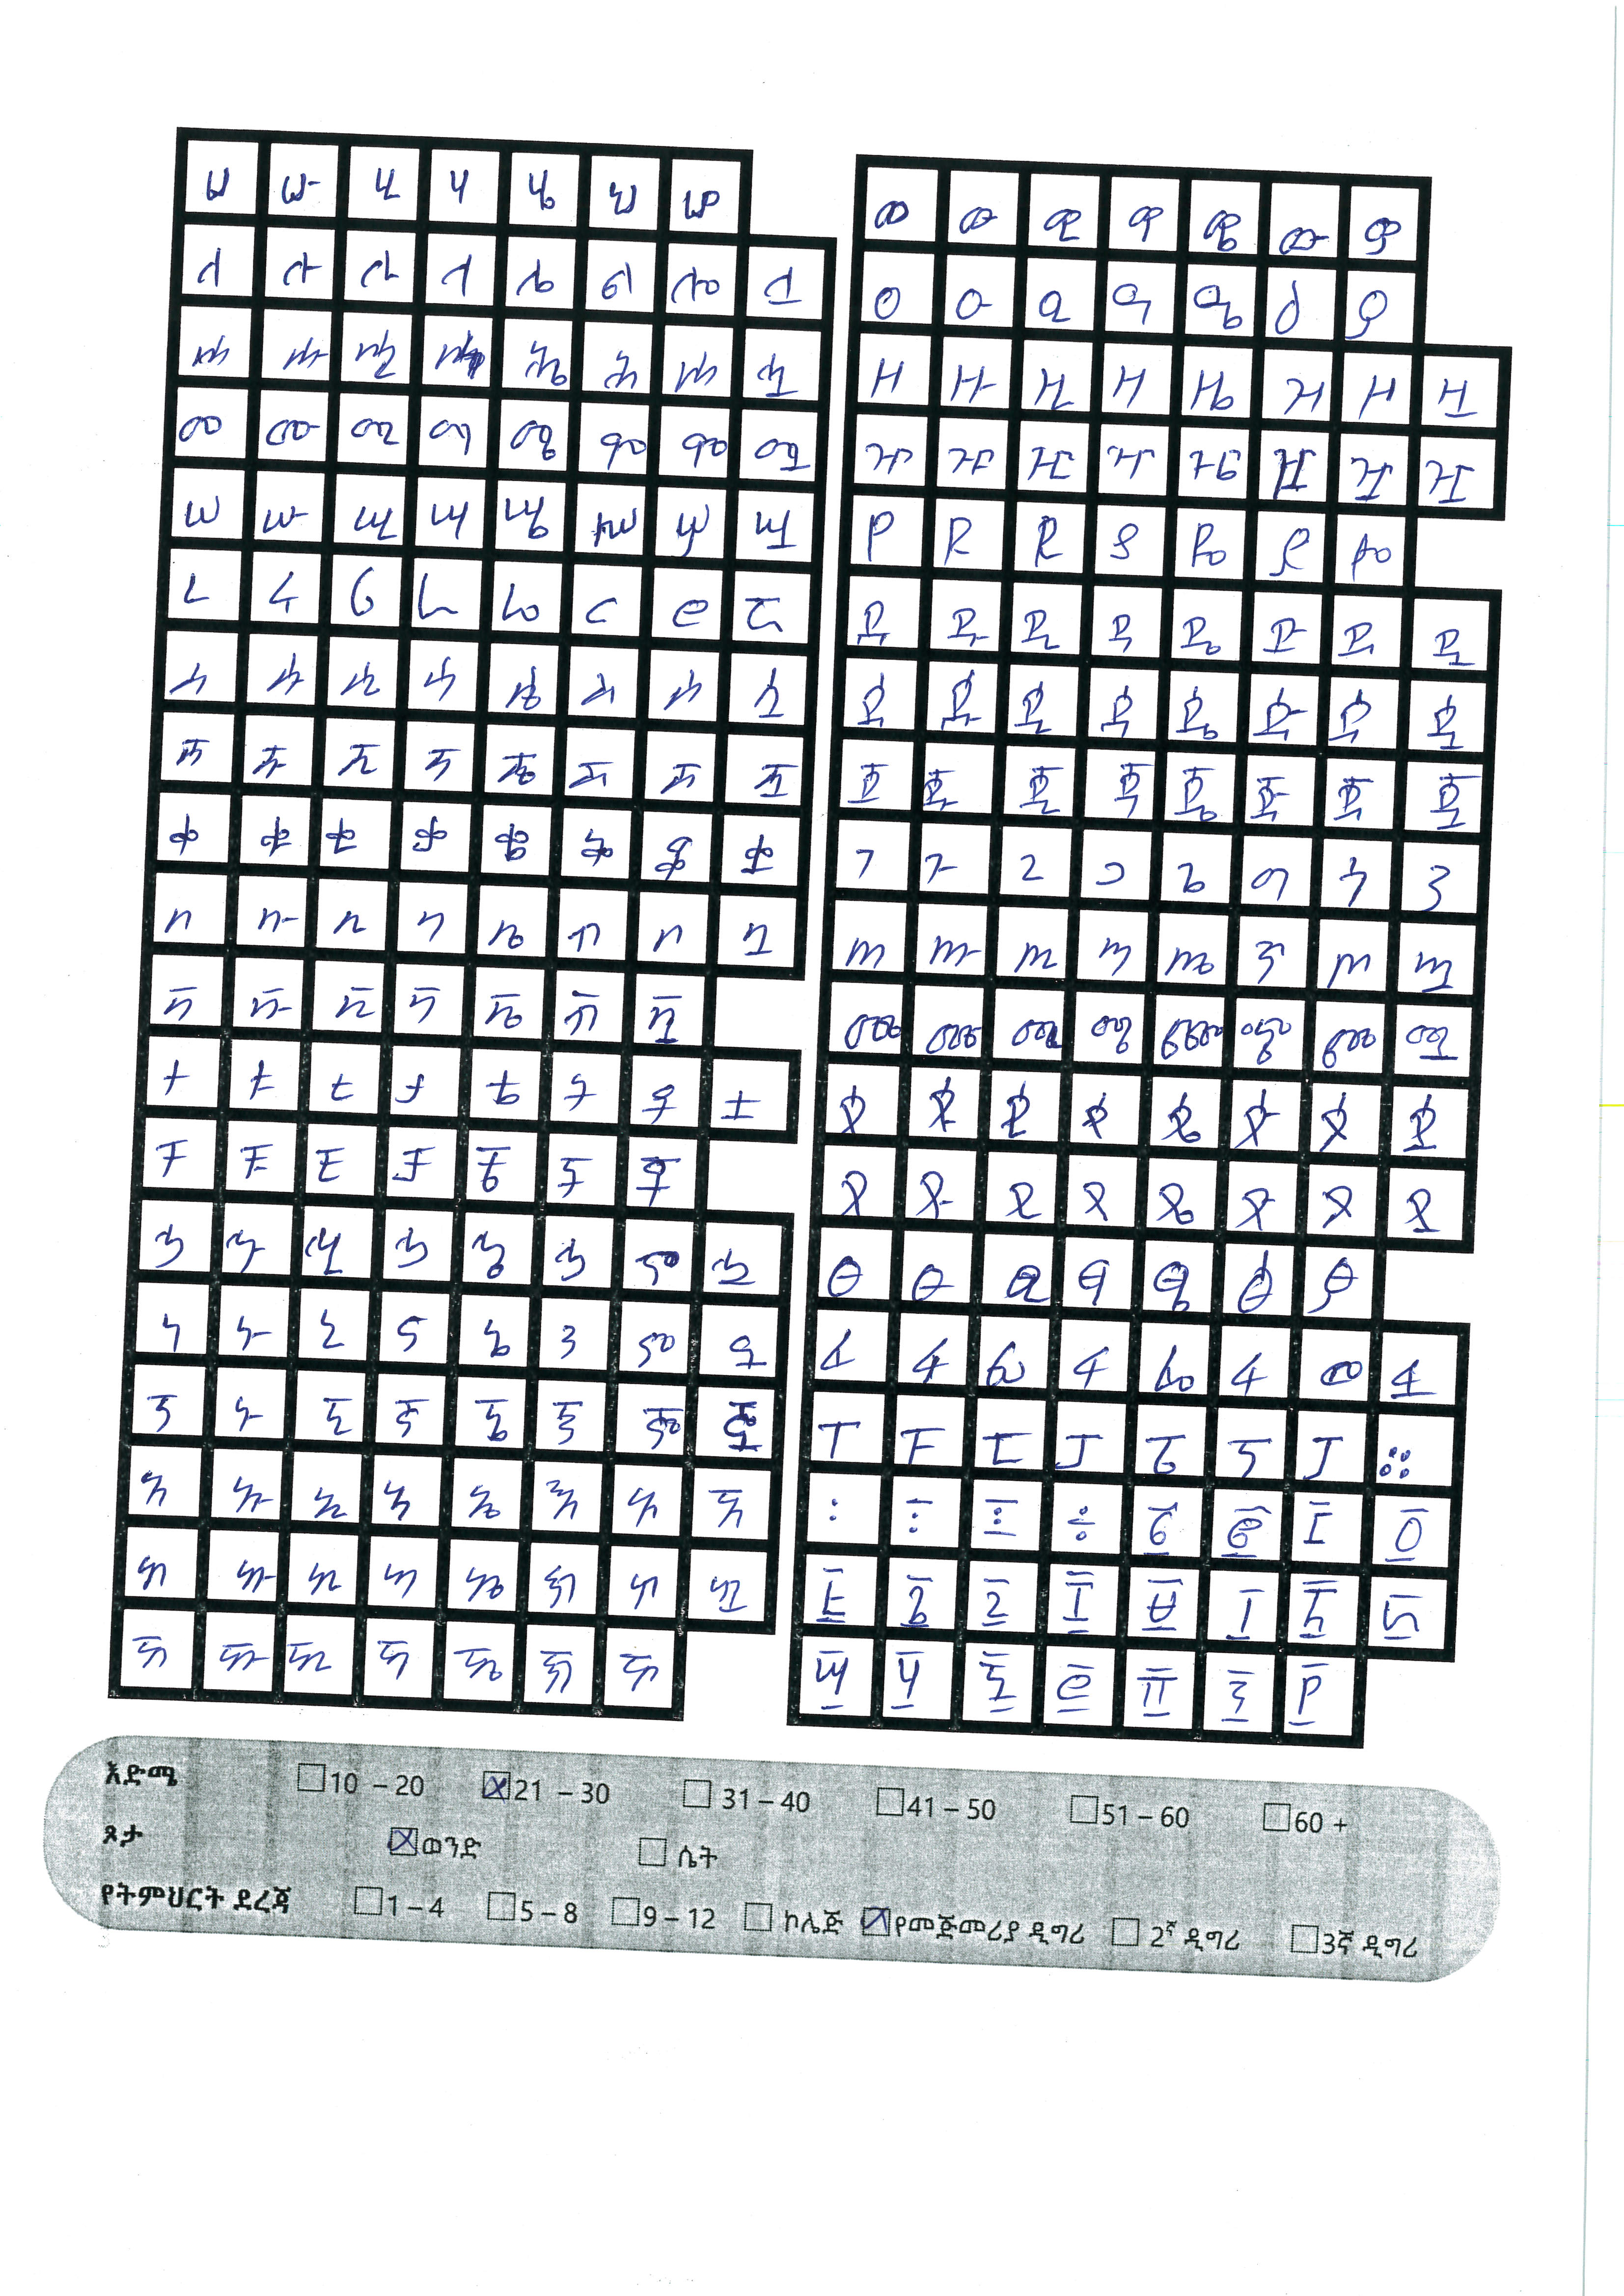 ሀ ሁ ሂ ሃ ሄ ህ ሆ
ለ ሉ ሊ ላ ሌ ል ሎ ሏ
ሐ ሑ ሒ ሓ ሔ ሕ ሖ ሗ
መ ሙ ሚ ማ ሜ ም ሞ ሟ
ሠ ሡ ሢ ሣ ሤ ሥ ሦ ሧ
ረ ሩ ሪ ራ ሬ ር ሮ ሯ
ሰ ሱ ሲ ሳ ሴ ስ ሶ ሷ
ሸ ሹ ሺ ሻ ሼ ሽ ሾ ሿ
ቀ ቁ ቂ ቃ ቄ ቅ ቆ ቋ
በ ቡ ቢ ባ ቤ ብ ቦ ቧ
ቨ ቩ ቪ ቫ ቬ ቭ ቯ
ተ ቱ ቲ ታ ቴ ት ቶ ቷ
ቸ ቹ ቺ ቻ ቼ ች ቾ
ኀ ኁ ኂ ኃ ኄ ኅ ኆ ኋ
ነ ኑ ኒ ና ኔ ን ኖ ኗ
ኘ ኙ ኚ ኛ ኜ ኝ ኞ ኟ
አ ኡ ኢ ኣ ኤ እ ኦ ኧ
ከ ኩ ኪ ካ ኬ ክ ኮ ኳ
ኸ ኹ ኺ ኻ ኼ ኽ ኾ
ወ ዉ ዊ ዋ ዌ ው ዎ
ዐ ዑ ዒ ዓ ዔ ዕ ዖ
ዘ ዙ ዚ ዛ ዜ ዝ ዞ ዟ
ዠ ዡ ዢ ዣ ዤ ዥ ዦ ዧ
የ ዩ ዪ ያ ዬ ይ ዮ
ደ ዱ ዲ ዳ ዴ ድ ዶ ዷ
ዸ ዹ ዺ ዻ ዼ ዽ ዾ ዿ
ጀ ጁ ጂ ጃ ጄ ጅ ጆ ጇ
ገ ጉ ጊ ጋ ጌ ግ ጎ ጓ
ጠ ጡ ጢ ጣ ጤ ጥ ጦ ጧ
ጨ ጩ ጪ ጫ ጬ ጭ ጮ ጯ
ጰ ጱ ጲ ጳ ጴ ጵ ጶ ጷ
ጸ ጹ ጺ ጻ ጼ ጽ ጾ ጿ
ፀ ፁ ፂ ፃ ፄ ፅ ፆ
ፈ ፉ ፊ ፋ ፌ ፍ ፎ ፏ
ፐ ፑ ፒ ፓ ፔ ፕ ፖ ፨
፡ ፣ ፤ ÷ ፩ ፪ ፫ ፬
፭ ፮ ፯ ፰ ፱ ፲ ፳ ፴
፵ ፶ ፷ ፸ ፹ ፺ ፻
እድሜ 10 – 20 21 – 30 31 – 40 41 – 50 51 – 60 60 +
ጾታ ወንድ ሴት
የትምህርት ደረጃ 1 – 4 5 – 8 9 – 12 ኮሌጅ የመጀመሪያ ዲግሪ 2ኛ ዲግሪ 3ኛ ዲግሪ